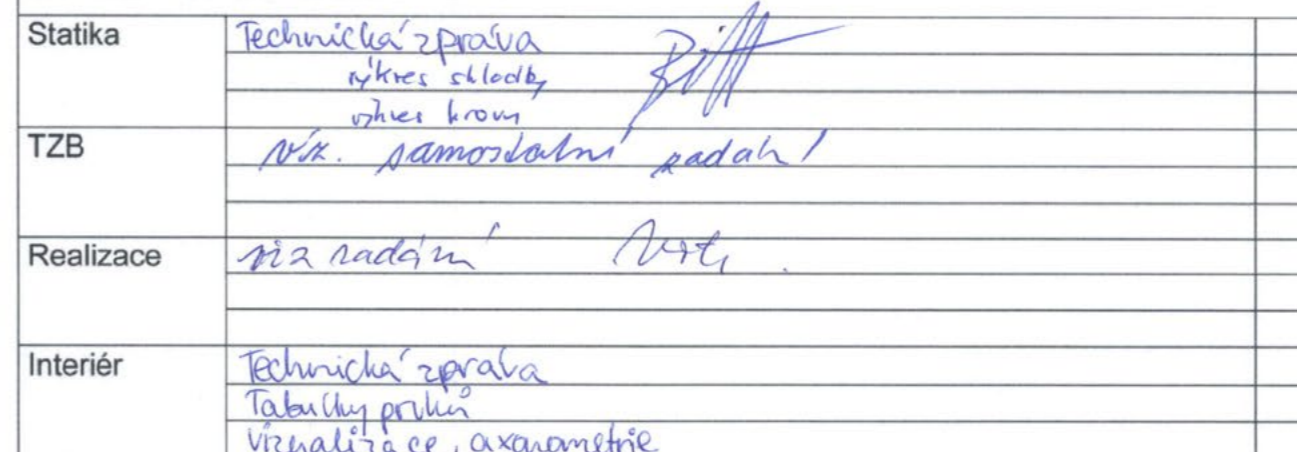 Statika Technická zpráva
výkres skladby
výkres krovu
TZB viz. samostatní zadání
Realizace viz zadání
Interiér Technická zpráva
Tabulky prvků
Vizualizace, axonometrie